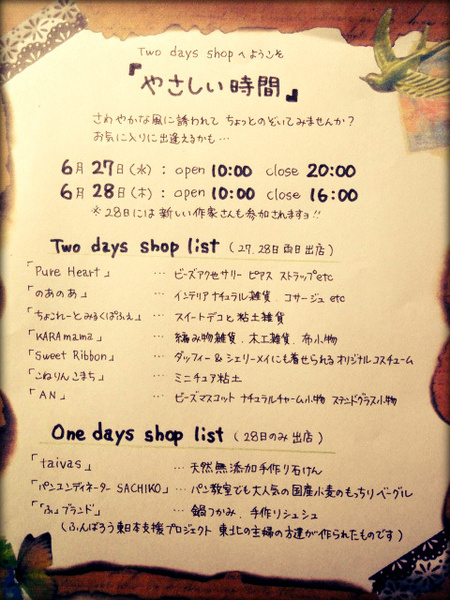 Two days shop へようこそ
『やさしい時間』
さわやかな風に誘われて ちょっとのぞいてみませんか?
お気に入りに出逢えるかも…
6月27日(水) : open 10:00 close 20:00
6月28日(木) : open 10:00 close 16:00
※28日には新しい作家さんも参加されますョ!!
Two days shop list (27.28日両日出店)
「Pure Heart」 … ビーズアクセサリー ピアス ストラップetc
「のあのあ」 … インテリアナチュラル雑貨. コサージュ etc
「ちょこれーとみるくぱふぇ」 … スイートデコと粘土雑貨
「KARAmama」 … 編み物雑貨. 木工雑貨. 布小物
「Sweet Ribbon」 … ダッフィー&シェリーメイにも着せられるオリジナルコスチューム
「こねりんこまち」 … ミニチュア粘土
「AN」 … ビーズマスコット ナチュラルチャーム小物 ステンドグラス小物
One days shop list (28日のみ出店)
「taivas」 … 天然無添加手作り石けん
「パンコンディネーター SACHIKO」 … パン教室でも大人気の国産小麦のもっちりベーグル
「「ふ」ブランド」 … 鍋つかみ. 手作りシュシュ
(ふんばろう東日本支援プロジェクト 東北の主婦の方達が作られたものです)